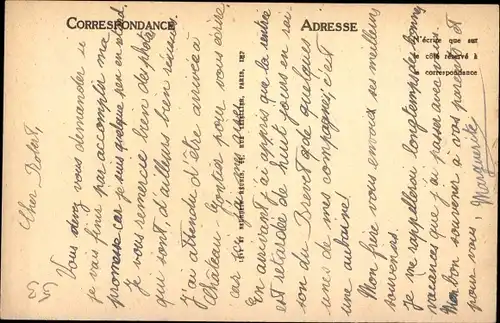 CORRESPONDANCE
ADRESSE
N'écrire que sur
le côté réservé à
la correspondance
LÉVY ET NEURDEIN RÉUNIS, 44, RUE LETELLIER, PARIS, IMP
Cher Robert,
Vous devez vous demander si
je vais finir par accomplir ma
promesse car je suis quelque peu en retard.
je vous remercie bien des photos
qui sont, d'ailleurs bien réussies.
J'ai attendu d'être arrivée à
Château-Gontier pour vous écrire
car
En arrivant, j'ai appris que la rentrée
est retardée de huit jours en rai-
son du Brevet que quelques
unes de mes compagnes, c'est
une aubaine!
Mon frère vous envoie ses meilleurs
souvenirs.
je me rappellerai longtemps des bonnes
vacances que j'ai passées avec vous
Mon bon souvenir à vos parents et
pour vous! Marguerite